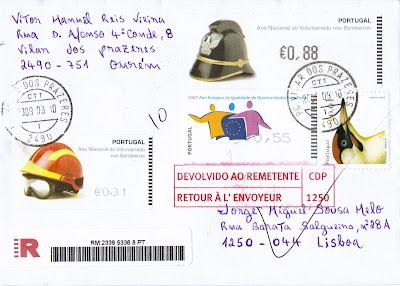 Vitor Manuel Reis Vieira
Rua D. Afonso 4º Conde, 8
Vilar dos prazeres
2490 - 751 Ourém
PORTUGAL
Ano Nacional do Voluntariado
nos Bombeiros
€0,88
PILAR DOS PRAZERES
CTT
2490
2007 Ano Europeu da Igualdade de Oportunidades
0,55
Portugal
PORTUGAL
Ano Nacional do Voluntariado
nos Bombeiros
€0,31
10
DEVOLVIDO AO REMETENTE
CDP
RETOUR À L' ENVOYEUR
1250
R
RM 2336 5336 8 PT
Jorge Miguel Sousa Melo
Rua Barata Salgueiro, nº 28A
1250 - 044 Lisboa